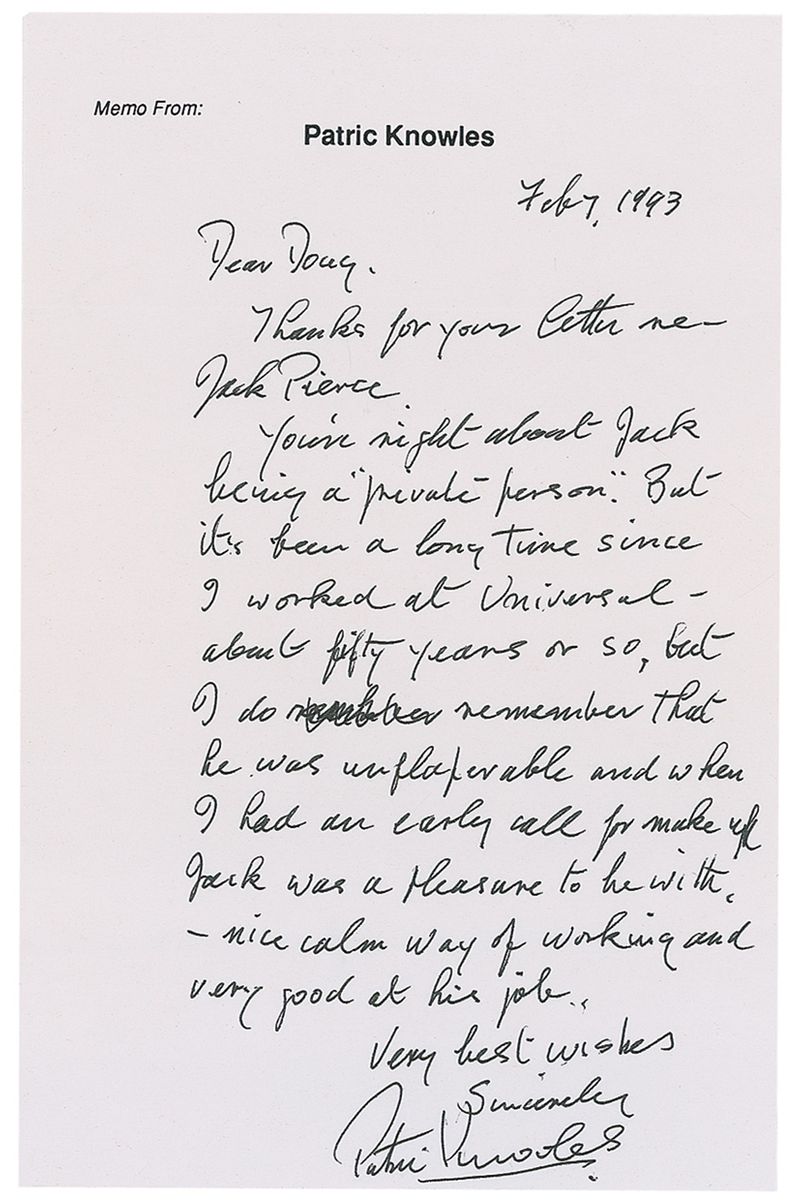 Memo From:
Patric Knowles
Feb 7, 1993
Dear Doug.
Thanks for your letter re-
Jack Pierce.
You're right about Jack
being a "private person". But
it's been a long time since
I worked at Universal -
about fifty years or so, but
I do remember that
he was unflapperable and when
I had an early call for make up
Jack was a pleasure to be with.
- nice calm way of working and
very good at his job..
Very best wishes
Sincerely
Patric Knowles